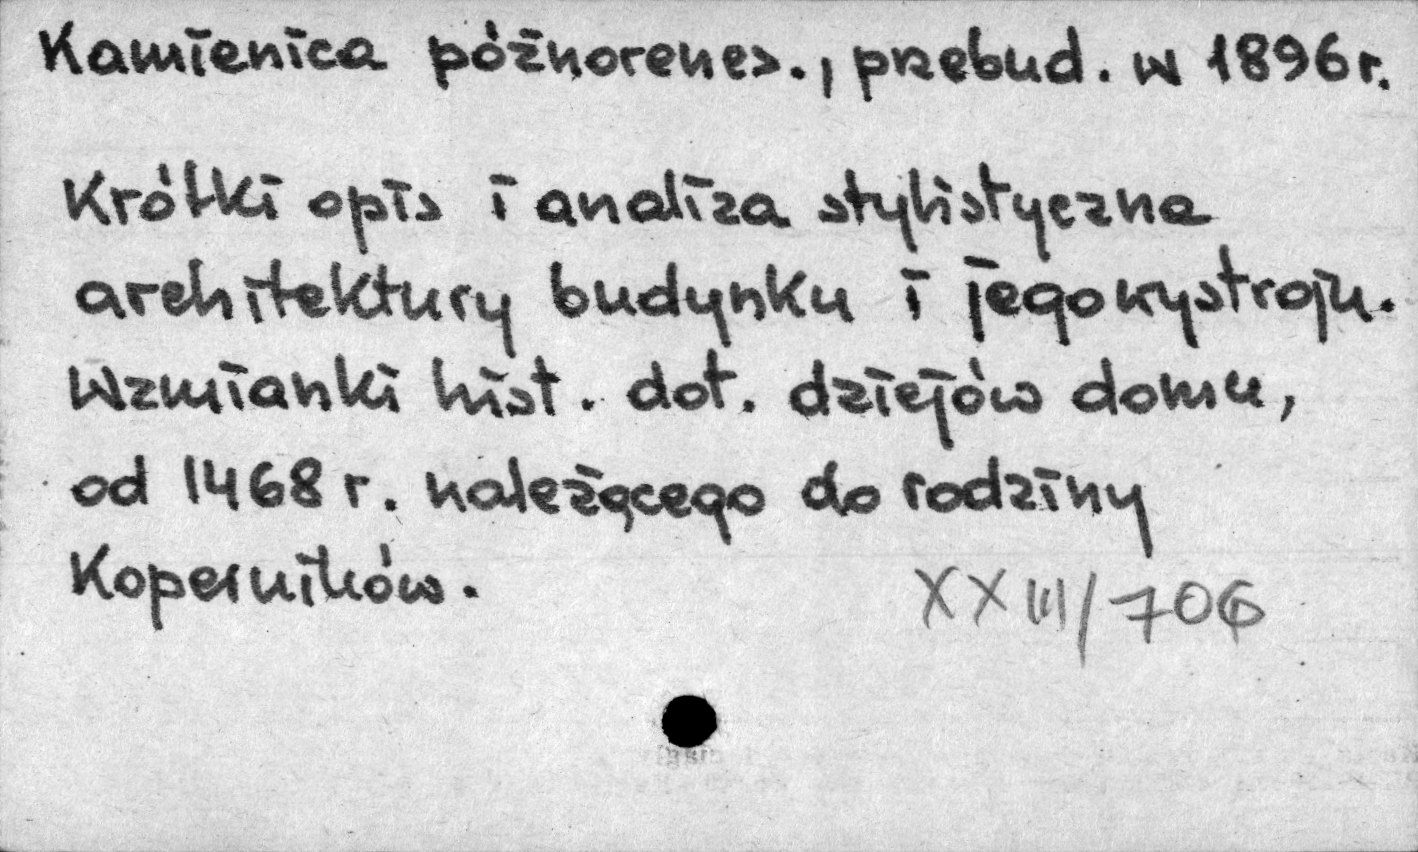 Kamienica późnorenes., przebud. w 1896 r.
Krótki opis i analiza stylistyczna
architektury budynku i jego wystroju.
Wzmianki hist. dot. dziejów domu,
od 1468 r. należącego do rodziny
Koperników.
XXIII/706